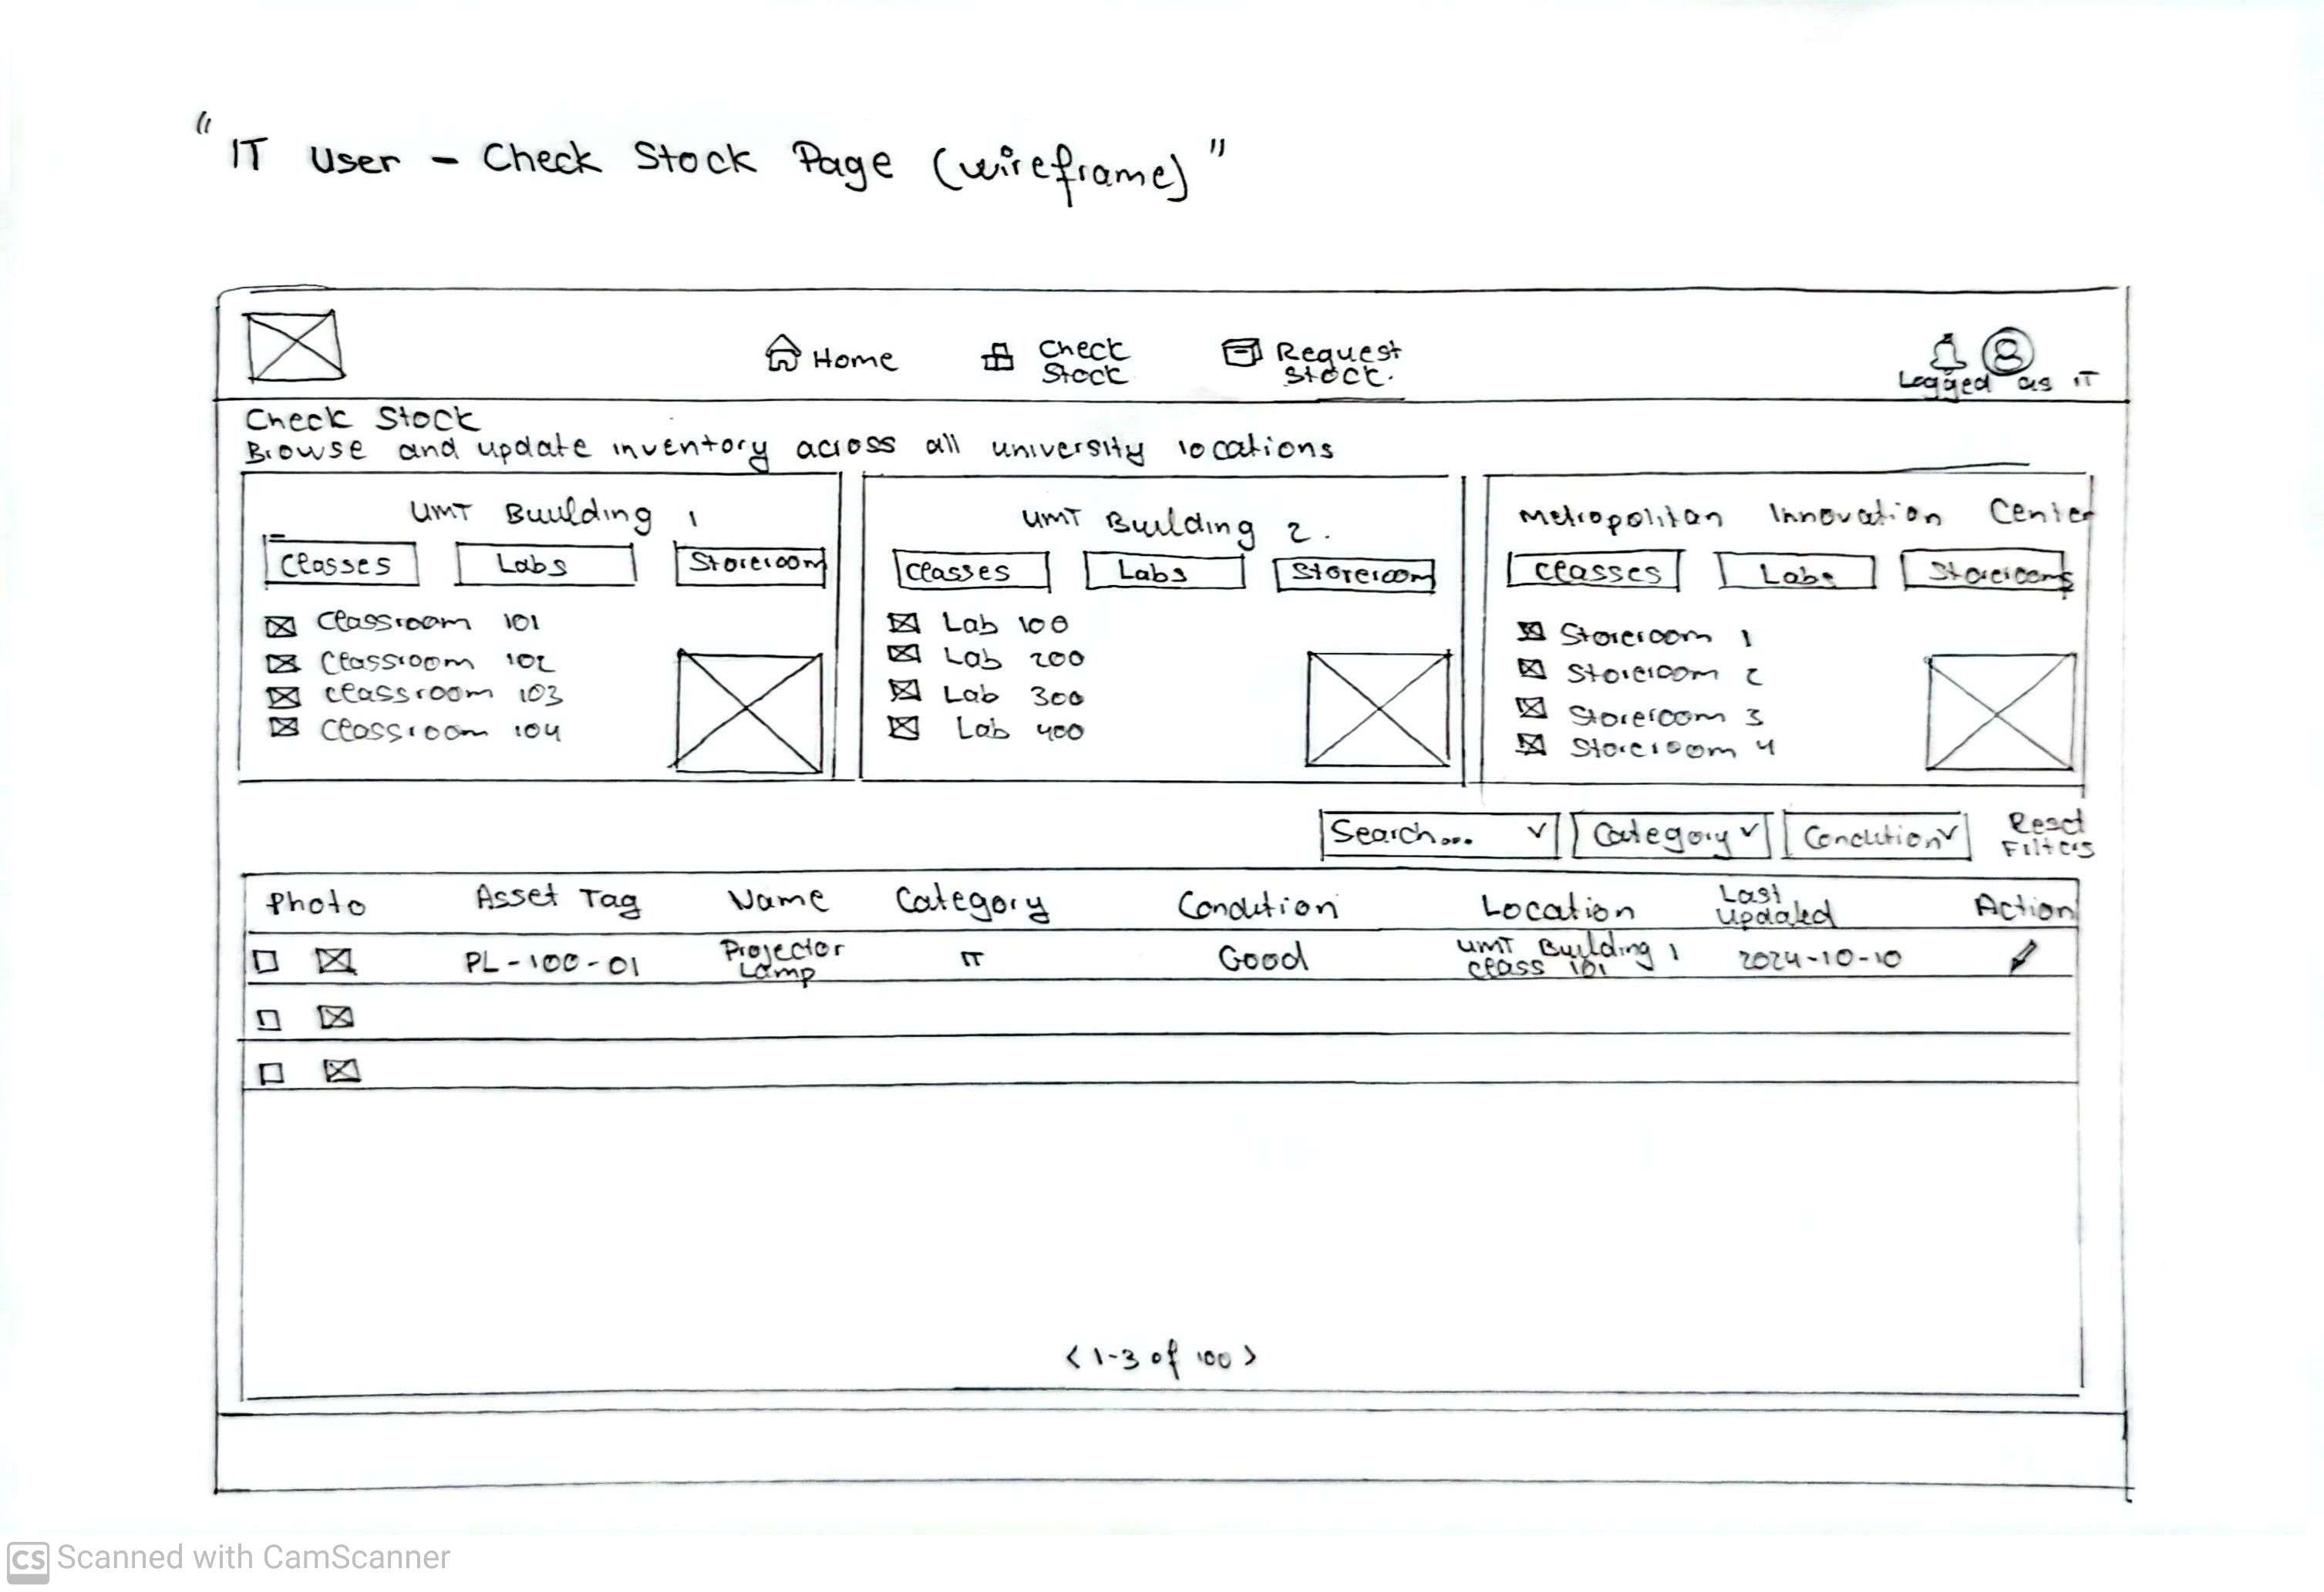 "IT User - Check Stock Page (wireframe)"
Home
Check Stock
Request Stock.
Logged as IT
Check Stock
Browse and update inventory across all university locations
UMT Buulding 1
Classes Labs Storeroom
Classroom 101
Classroom 102
Classroom 103
Classroom 104
UMT Building 2.
Classes Labs Storeroom
Lab 100
Lab 200
Lab 300
Lab 400
Metropolitan Innovation Center
Classes Labs Storerooms
Storeroom 1
Storeroom 2
Storeroom 3
Storeroom 4
Search... Category Condition Reset Filters
Photo Asset Tag Name Category Condition Location Last Updated Action
PL-100-01 Projector Lamp IT Good UMT Building 1 Class 101 2024-10-10
< 1-3 of 100 >
CS Scanned with CamScanner